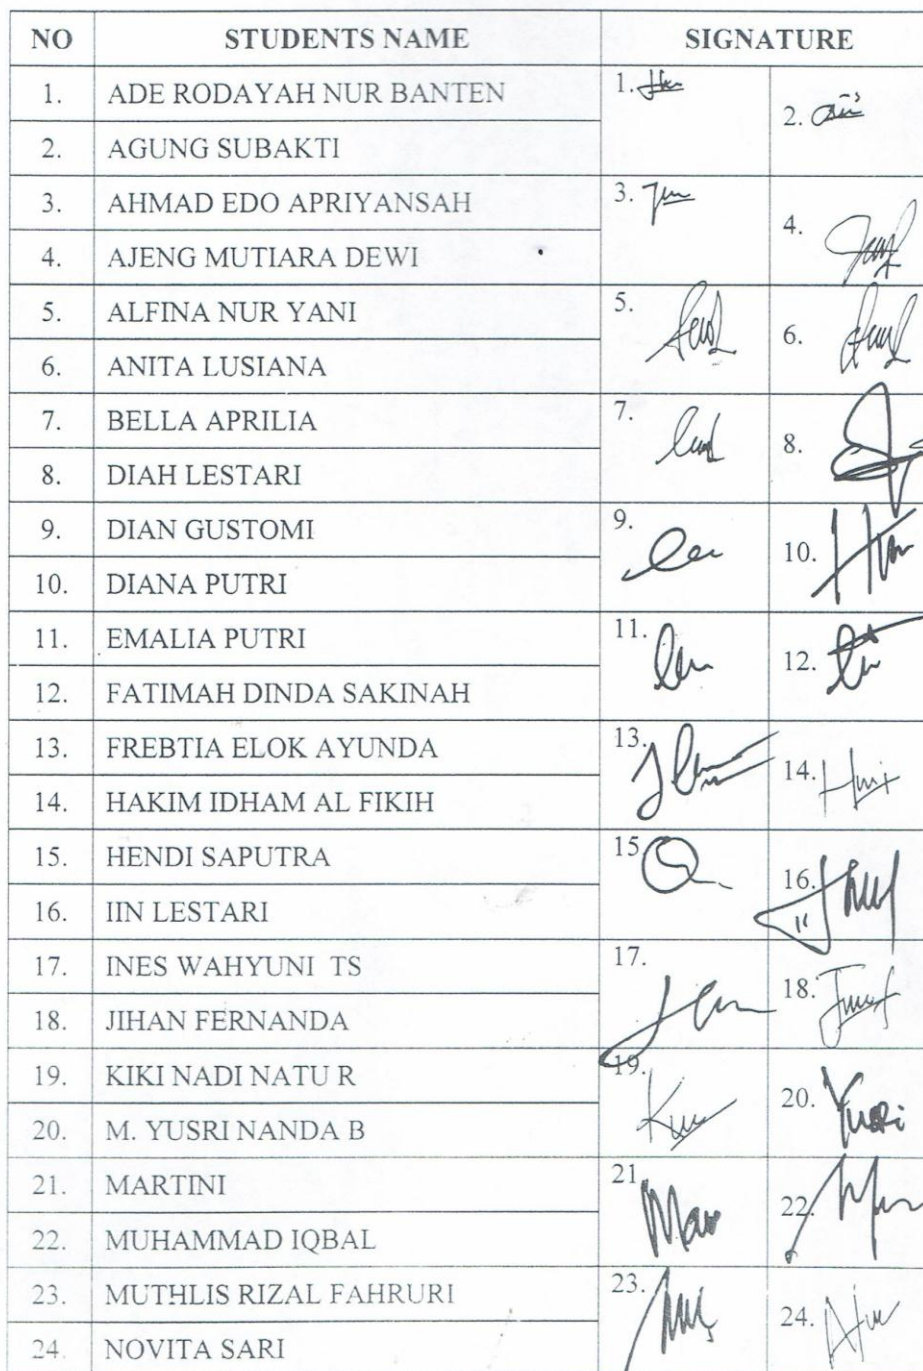 NO STUDENTS NAME SIGNATURE
1. ADE RODAYAH NUR BANTEN 1.
2. AGUNG SUBAKTI 2.
3. AHMAD EDO APRIYANSAH 3.
4. AJENG MUTIARA DEWI 4.
5. ALFINA NUR YANI 5.
6. ANITA LUSIANA 6.
7. BELLA APRILIA 7.
8. DIAH LESTARI 8.
9. DIAN GUSTOMI 9.
10. DIANA PUTRI 10.
11. EMALIA PUTRI 11.
12. FATIMAH DINDA SAKINAH 12.
13. FREBTIA ELOK AYUNDA 13.
14. HAKIM IDHAM AL FIKIH 14.
15. HENDI SAPUTRA 15
16. IIN LESTARI 16.
17. INES WAHYUNI TS 17.
18. JIHAN FERNANDA 18.
19. KIKI NADI NATU R 19.
20. M. YUSRI NANDA B 20. Yusri
21. MARTINI 21
22. MUHAMMAD IQBAL 22.
23. MUTHLIS RIZAL FAHRURI 23.
24. NOVITA SARI 24.